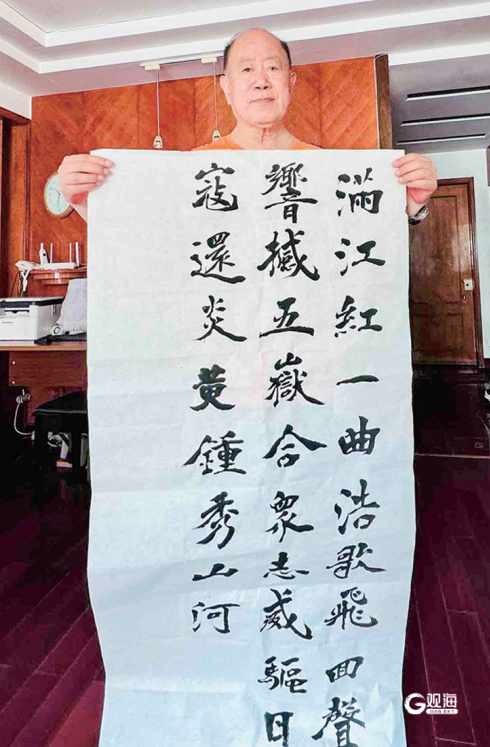 滿江紅一曲浩歌飛回聲
響撼五嶽合衆志威驅日
寇還炎黃鍾秀山河
G观海